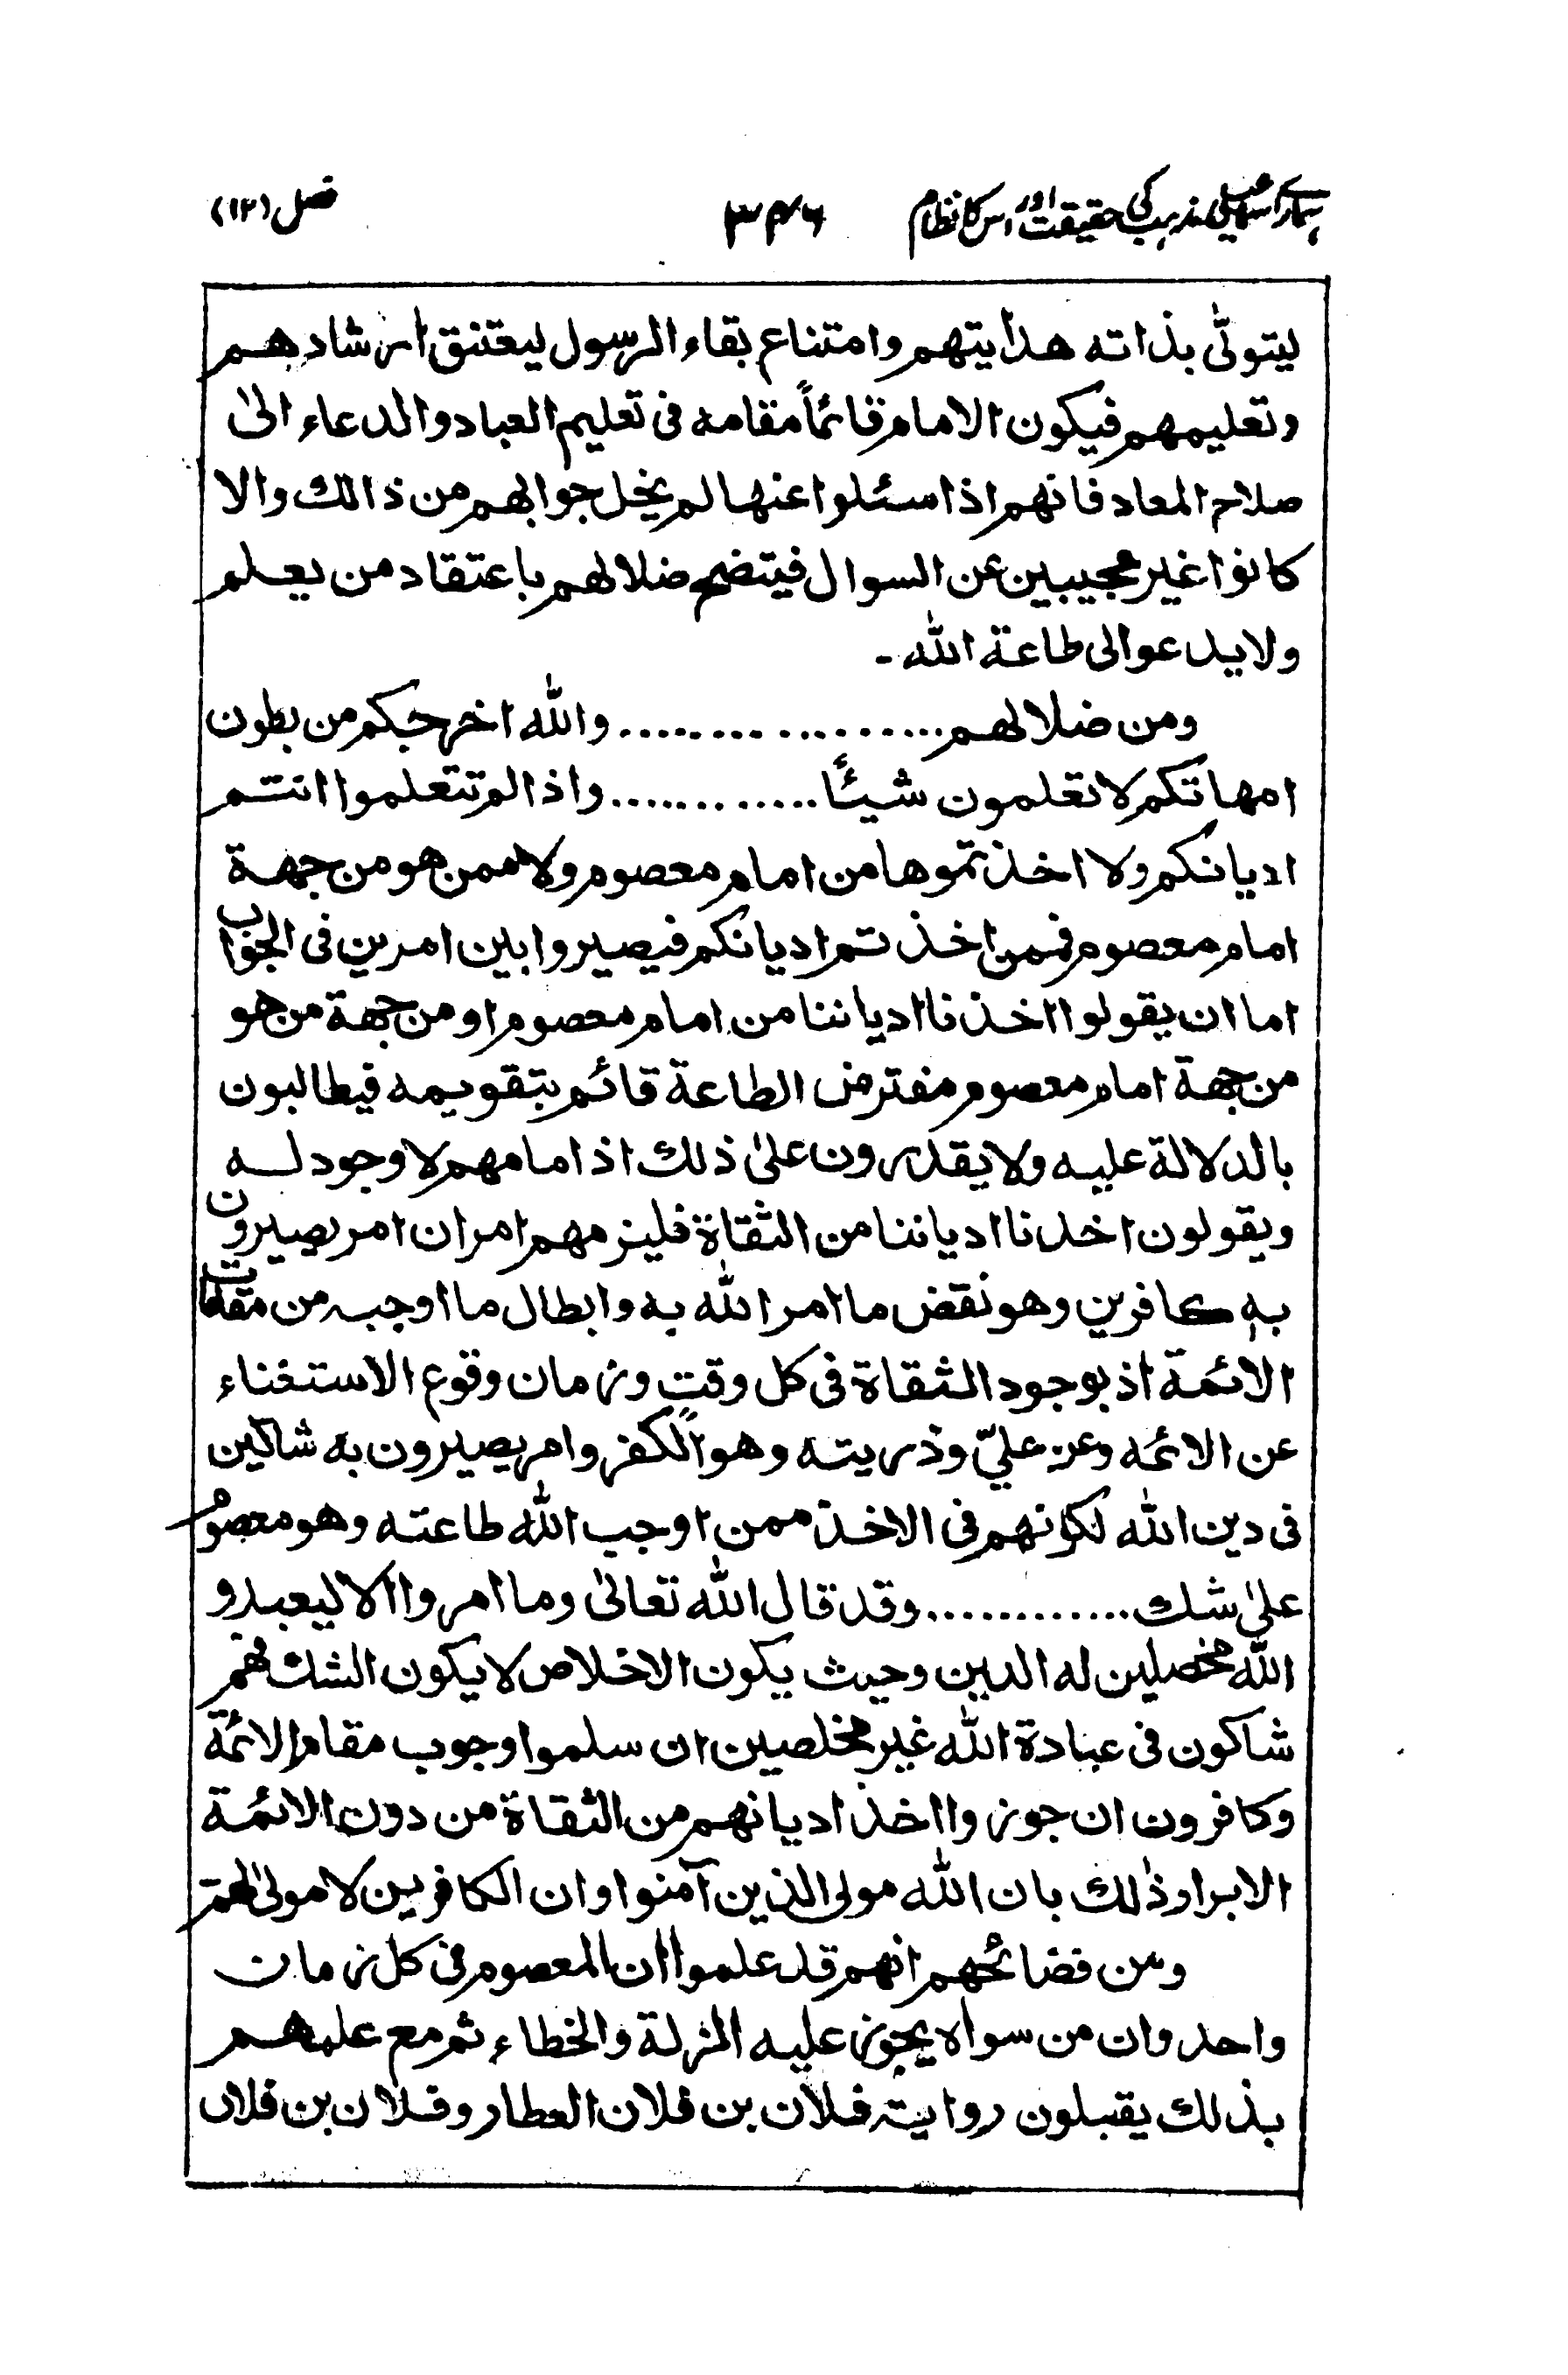 ہمارے اسمٰعیلی مذہب کی حقیقت اور اس کا نظام ۳۴۶ فصل (۱۲)
ليتولّٰى بذاته هدايتهم وامتناع بقاء الرسول ليعتنق ارشادهم
وتعليمهم فيكون الامام قائماً مقامه فى تعليم العباد والدعاء الىٰ
صلاح المعاد فانهم اذا سئلوا عنها لم يخل جوابهم من ذالك والا
كانوا غير مجيبين عن السوال فيتضح ضلالهم باعتقاد من يعلم
ولا يدعو الى طاعة الله ـ
ومن ضلالهم .................. والله اخرجكم من بطون
امهاتكم لا تعلمون شيئًا ............. واذا لم تتعلموا انتم
اديانكم ولا اخذتموها من امام معصوم ولا ممن هو من جهة
امام معصوم فممن اخذتم اديانكم فيصيروا بين امرين فى الجواب
اما ان يقولوا اخذنا اديانننا من امام معصوم او من جهة من هو
من جهة امام معصوم مفترض الطاعة قائم بتقويمه فيطالبون
بالدلالة عليه ولا يقدرون علىٰ ذلك اذ امامهم لا وجود له
ويقولون اخذنا اديانننا من الثقاة فليزمهم امران امر يصيرون
به كافرين وهو نقض ما امر الله به وابطال ما اوجبه من مقامات
الائمة اذ بوجود الثقاة فى كل وقت وزمان وقوع الاستغناء
عن الائمه وعن عليّ وذريته وهو الكفر وامر يصيرون به شاكين
فى دين الله لكونهم فى الاخذ ممن اوجب الله طاعته وهو معصوم
علىٰ شك ............. وقد قال الله تعالىٰ وما امروا الا ليعبدو
الله مخصلين له الدين وحيث يكون الاخلاص لا يكون الشك فهم
شاكون فى عبادة الله غير مخلصين ان سلموا وجوب مقام الائمة
وكافرون ان جوزوا اخذ اديانهم من الثقاة من دون الائمة
الابرار وذٰلك بان الله مولى الذين آمنوا وان الكافرين لا مولىٰ لهم
ومن فضائحهم انهم قد علموا ان المعصوم فى كل زمان
واحد وان من سواه يجوز عليه الزلة والخطاء ثم مع علمهم
بذلك يقبلون رواية فلان بن فلان العطار وفلان بن فلان